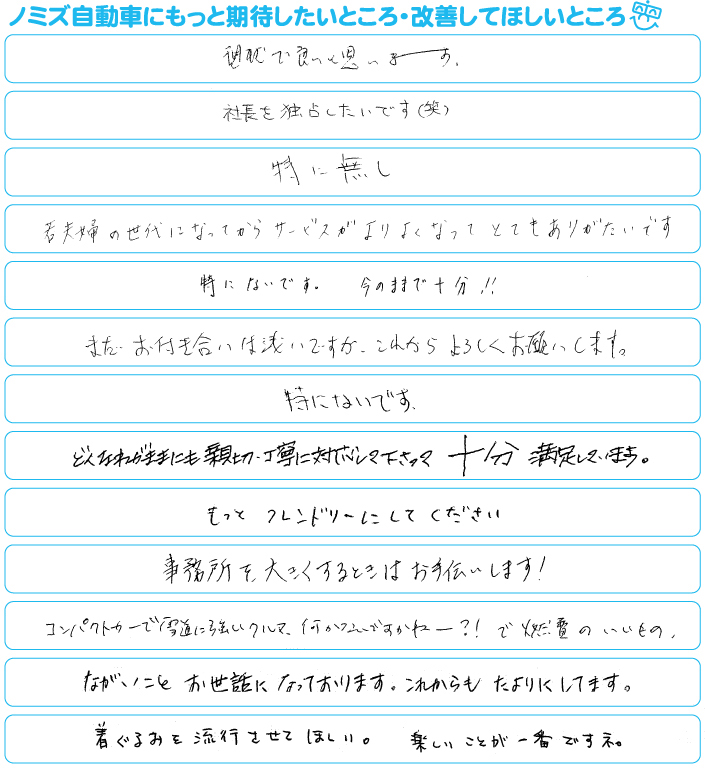 ノミズ自動車にもっと期待したいところ・改善してほしいところ
現状で良いと思いまーす。
社長を独占したいです(笑)
特に無し
若夫婦の世代になってからサービスがよりよくなってとてもありがたいです
特にないです。 今のままで十分!!
まだお付き合いは浅いですが、これからよろしくお願いします。
特にないです。
どんなわがままにも親切・丁寧に対応して下さって十分満足しています。
もっとフレンドリーにしてください
事務所を大きくするときはお手伝いします!
コンパクトカーで雪道に強いクルマ、何かないですかねー?!で燃費のいいもの。
ながいことお世話になっております。これからもたよりにしてます。
着ぐるみを流行させてほしい。 楽しいことが一番ですネ。